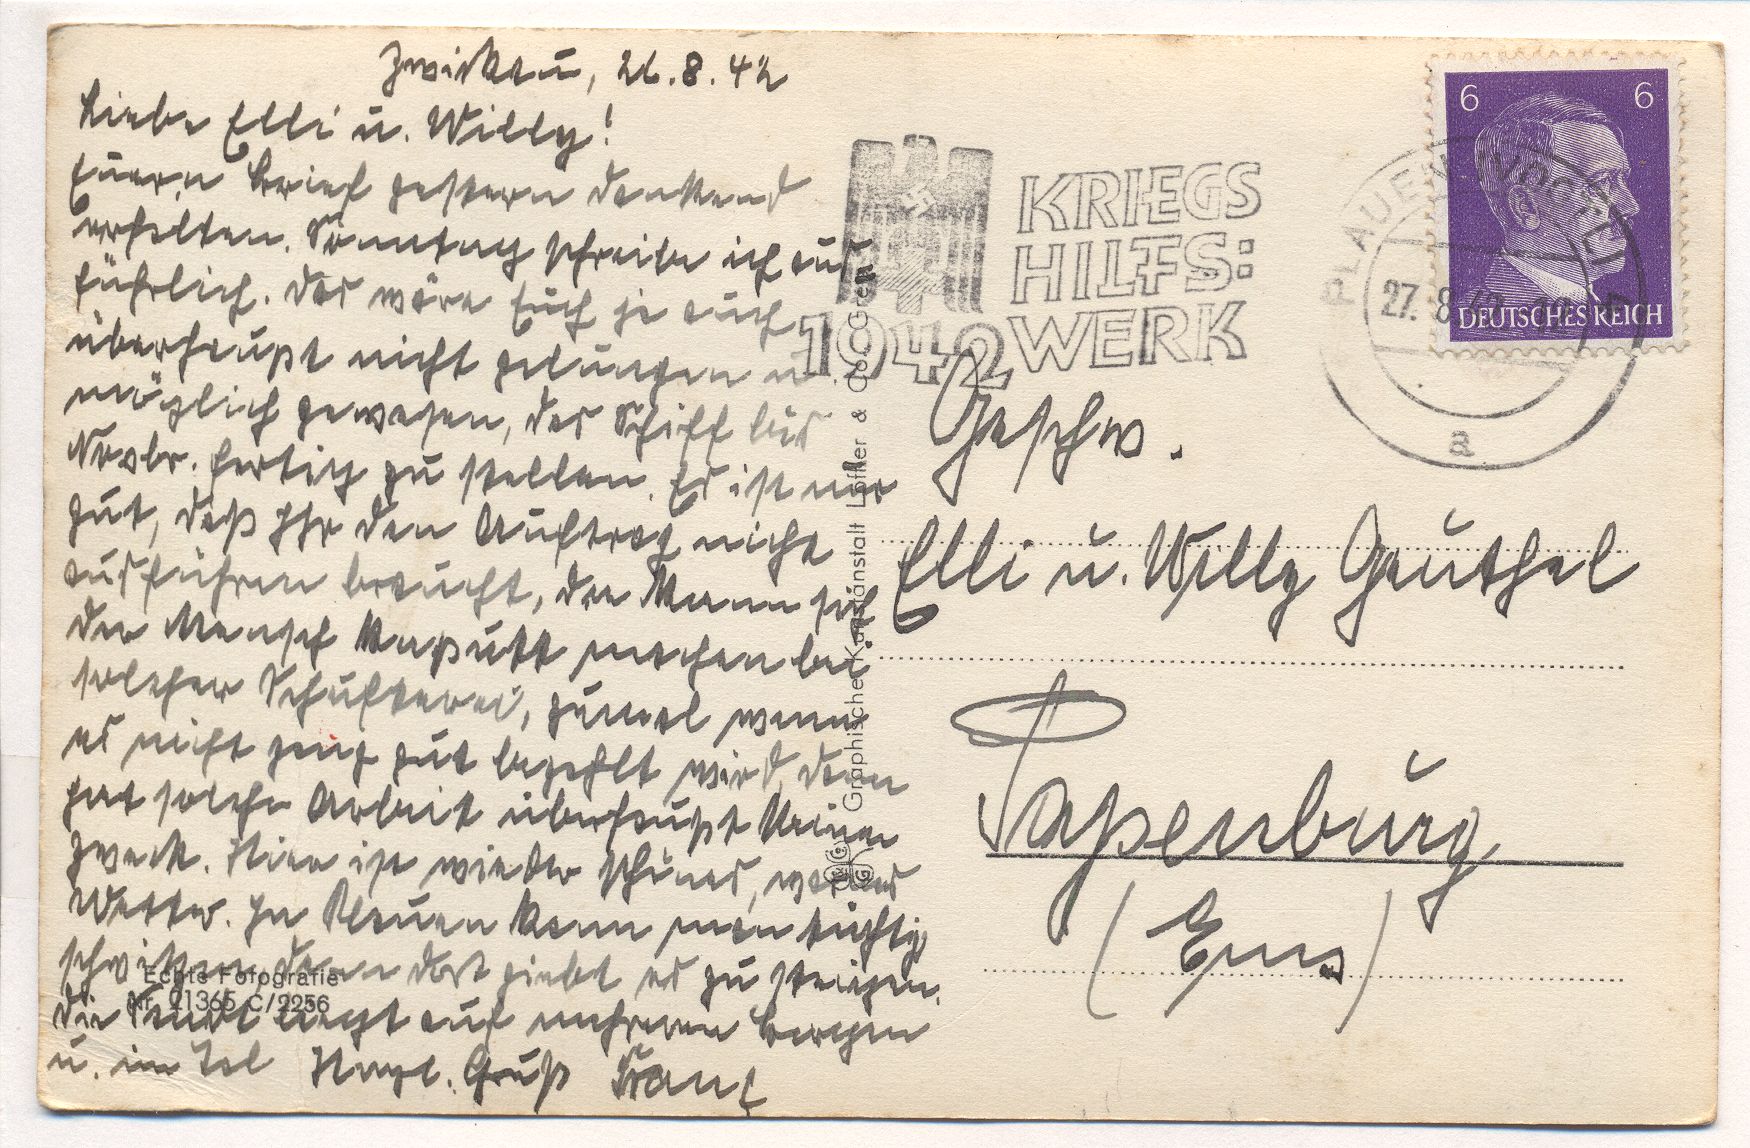 Zwickau, 26.8.42
Liebe Elli u. Willy!
Euern Brief gestern dankend
erhalten. Sonntag schreibe ich aus-
führlich. Das wäre Euch ja auch
überhaupt nicht gelungen u.
möglich gewesen, das Schiff bis
Novbr. fertig zu stellen. Es ist nur
gut, daß Ihr den Auftrag nicht
ausführen braucht, denn kann sich
der Mensch kaputt machen bei
solcher Schufterei, zumal wenn
es nicht ganz gut bezahlt wird, dann
hat solche Arbeit überhaupt keinen
Zweck. Hier ist wieder schönes, warmes
Wetter. In Plauen kann man tüchtig
schwitzen, denn dort giebt es zu steigen.
Die Stadt liegt auf mehreren Bergen
u. im Tal Herzl. Gruß Franz
Echte Fotografie
Nr. 01365 C/2256
Graphische Kunstanstalt Löffler & Co., Greiz
KRIEGS
HILFS:
WERK
1942
PLAUEN (VOGTL)
27. 8. 42
a
6 6
DEUTSCHES REICH
Geschw.
Elli u. Willy Geuthel
Papenburg
(Ems)